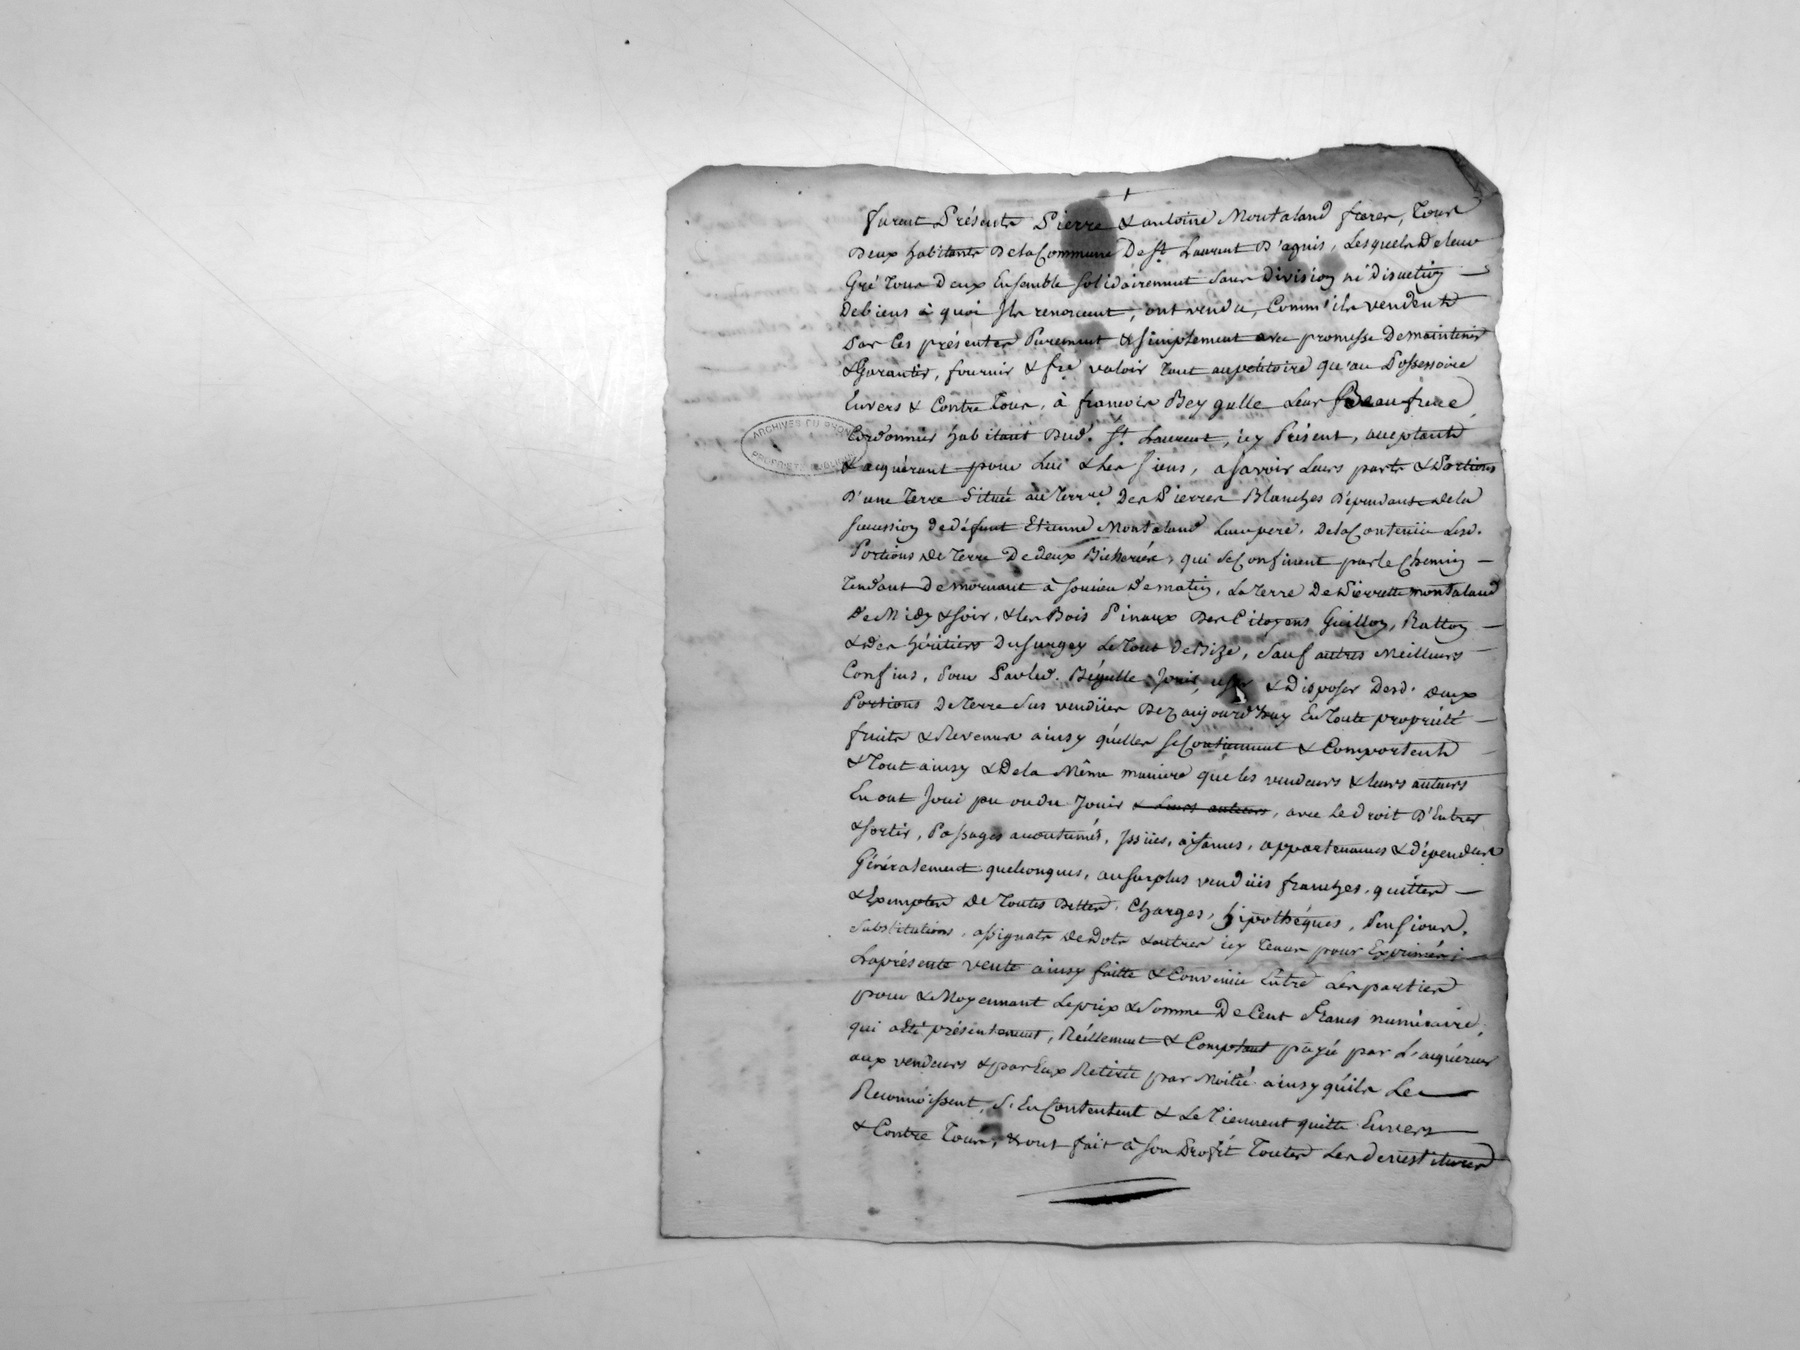 furent Présents Pierre & antoine Montaland freres, Tous
Deux habitants Dela Commune De St. Laurent D'agnis, Lesquels De leur
Gré Tous Deux Ensemble solidairement sans Division ni Discution
De biens à quoi Ils renoncent, ont vendu, Comm'ils vendent
Par Ces présentes Purement & simplement avec promesse De maintenir
& Garantir, fournir & fre valoir Tout au petitoire qu'au Possessoire
Envers & Contre Tous, à francois Bey gulle Leur Beaufrere
Cordonnier habitant Dud. St. Laurent, icy Présent, acceptant
& acquérant pour Lui & Les siens, a savoir Leurs parts & Portions
D'une Terre située au Terre Des Pierres Blanches Dépendante de la
succession de défunt Etienne Montaland Leur pere, De la Contenüe Lesd.
Portions De Terre De deux Bicherées, qui se Confinent par le Chemin
Tendant De mornant à soucieu De matin, La Terre De Pierrette montaland
De Midy & soir, & les Bois Pinaux Des Citoyens Guillon, Ratton
& des héritiers Du surgey Le Tout De Bize, sauf autres Meilleurs
Confins, Pour Par Led. Bégulle Jouir, user & Disposer Desd. deux
Portions De Terre sus vendües Dez aujourd'huy En Toute propriété
fruits & Revenus ainsy quelles se Contiennent & Comportent
& Tout ainsy & De la Même maniere que les vendeurs & leurs auteurs
En ont Joui pu ou du Jouir & Leurs auteurs, avec Le droit D'Entrer
& sortir, Passages accoutumés, Issües, aisances, appartenances & dépendces
Généralement quelconques, au surplus vendües franches, quittes
& Exemptes De Toutes Dettes, Charges, hipothéques, Pensions,
substitutions, assignats De Dots & autres icy Tenus pour Exprimés ;
La présente vente ainsy faitte & Convenüe Entre Les parties
pour & Moyennant Le prix & somme De Cent Francs numéraire,
qui a été présentement, Réellement & Comptant payé par L'acquéreur
aux vendeurs & par Eux Retiré par Moitié ainsy quils Le
Reconnoissent, s'En Contentent & Le Tiennent quitte Envers
& Contre Tous, & ont fait à son Profit Toutes Les devestitures
ARCHIVES DU RHONE
PROPRIETE PUBLIQUE